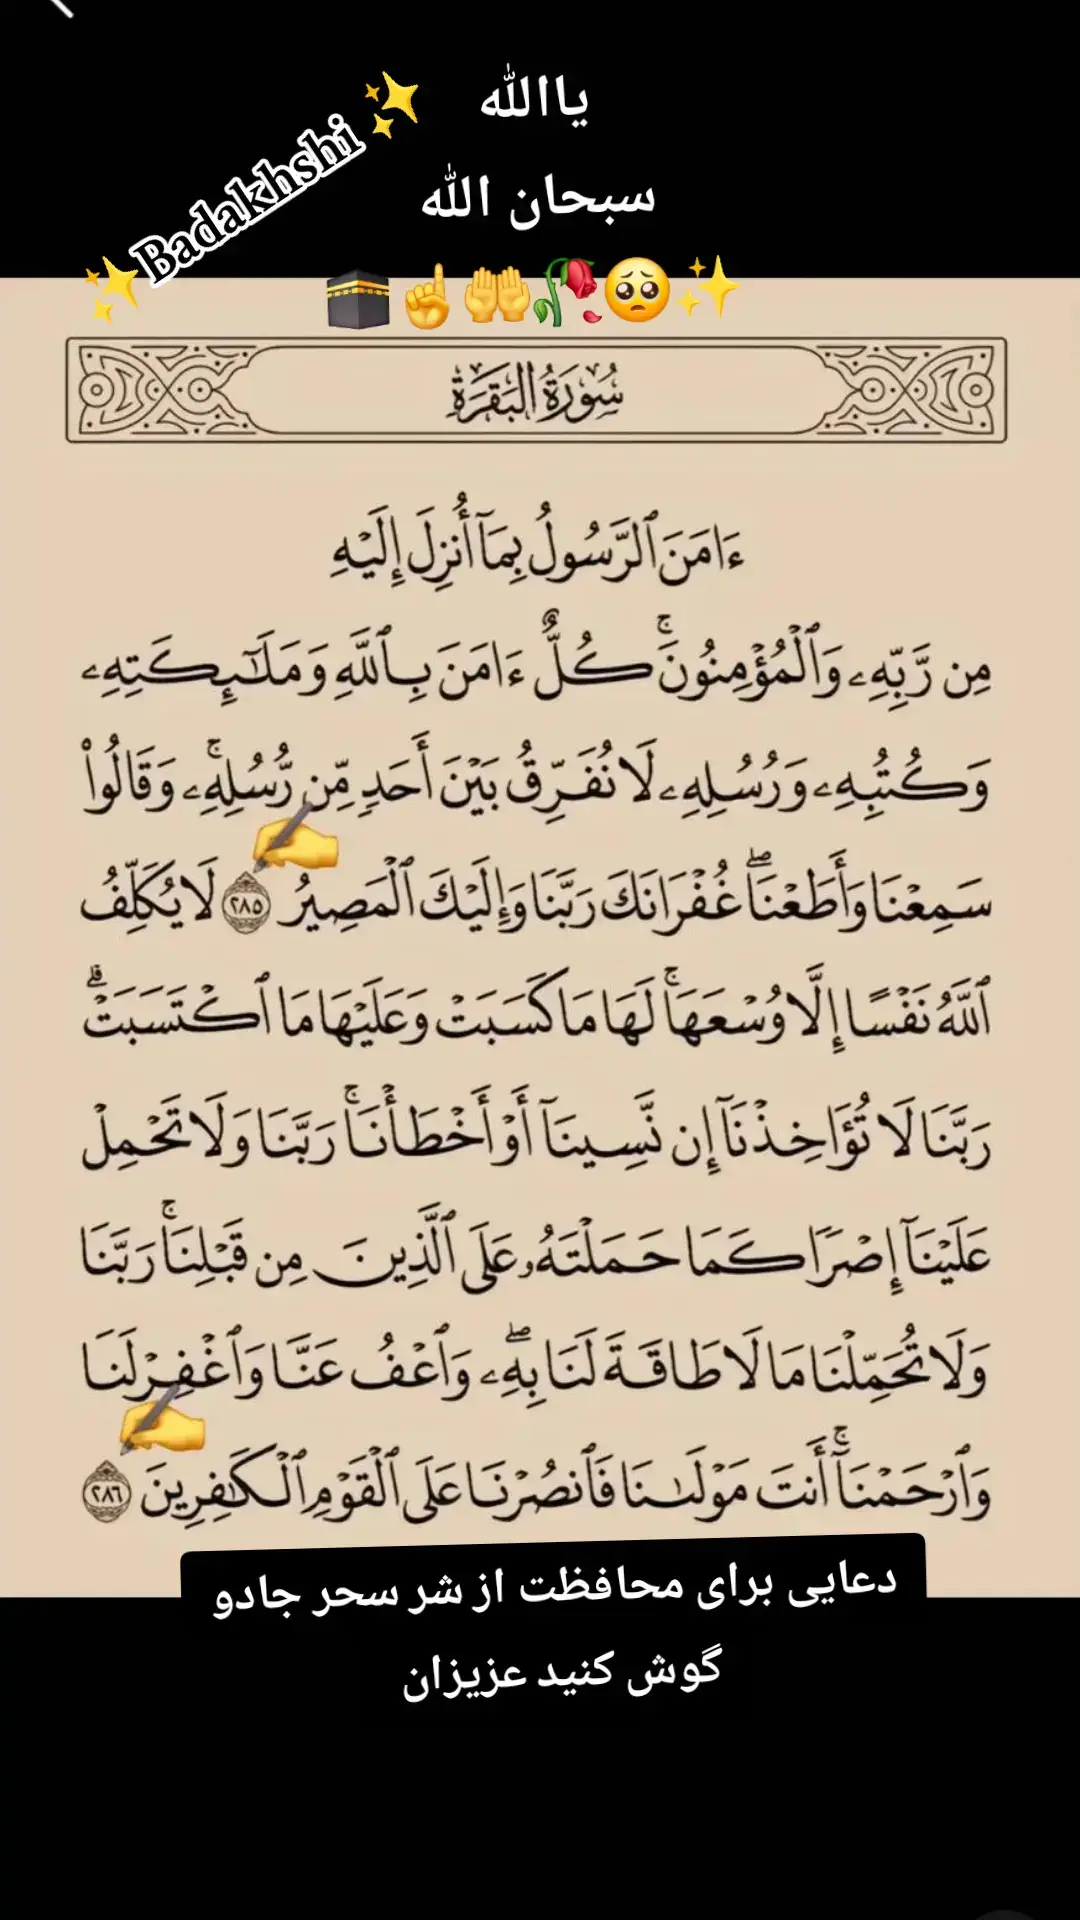 ياالله
سبحان الله
Badakhshi
سُورَةُ البَقَرَةِ
ءَامَنَ ٱلرَّسُولُ بِمَآ أُنزِلَ إِلَيْهِ
مِن رَّبِّهِۦ وَٱلْمُؤْمِنُونَۚ كُلٌّ ءَامَنَ بِٱللَّهِ وَمَلَـٰٓئِكَتِهِۦ
وَكُتُبِهِۦ وَرُسُلِهِۦ لَا نُفَرِّقُ بَيْنَ أَحَدٍ مِّن رُّسُلِهِۦۚ وَقَالُوا۟
سَمِعْنَا وَأَطَعْنَاۖ غُفْرَانَكَ رَبَّنَا وَإِلَيْكَ ٱلْمَصِيرُ ٢٨٥ لَا يُكَلِّفُ
ٱللَّهُ نَفْسًا إِلَّا وُسْعَهَاۚ لَهَا مَا كَسَبَتْ وَعَلَيْهَا مَا ٱكْتَسَبَتْۗ
رَبَّنَا لَا تُؤَاخِذْنَآ إِن نَّسِينَآ أَوْ أَخْطَأْنَاۚ رَبَّنَا وَلَا تَحْمِلْ
عَلَيْنَآ إِصْرًا كَمَا حَمَلْتَهُۥ عَلَى ٱلَّذِينَ مِن قَبْلِنَاۚ رَبَّنَا
وَلَا تُحَمِّلْنَا مَا لَا طَاقَةَ لَنَا بِهِۦۖ وَٱعْفُ عَنَّا وَٱغْفِرْ لَنَا
وَٱرْحَمْنَآۚ أَنتَ مَوْلَىٰنَا فَٱنصُرْنَا عَلَى ٱلْقَوْمِ ٱلْكَـٰفِرِينَ ٢٨٦
دعایی برای محافظت از شر سحر جادو
گوش کنید عزیزان